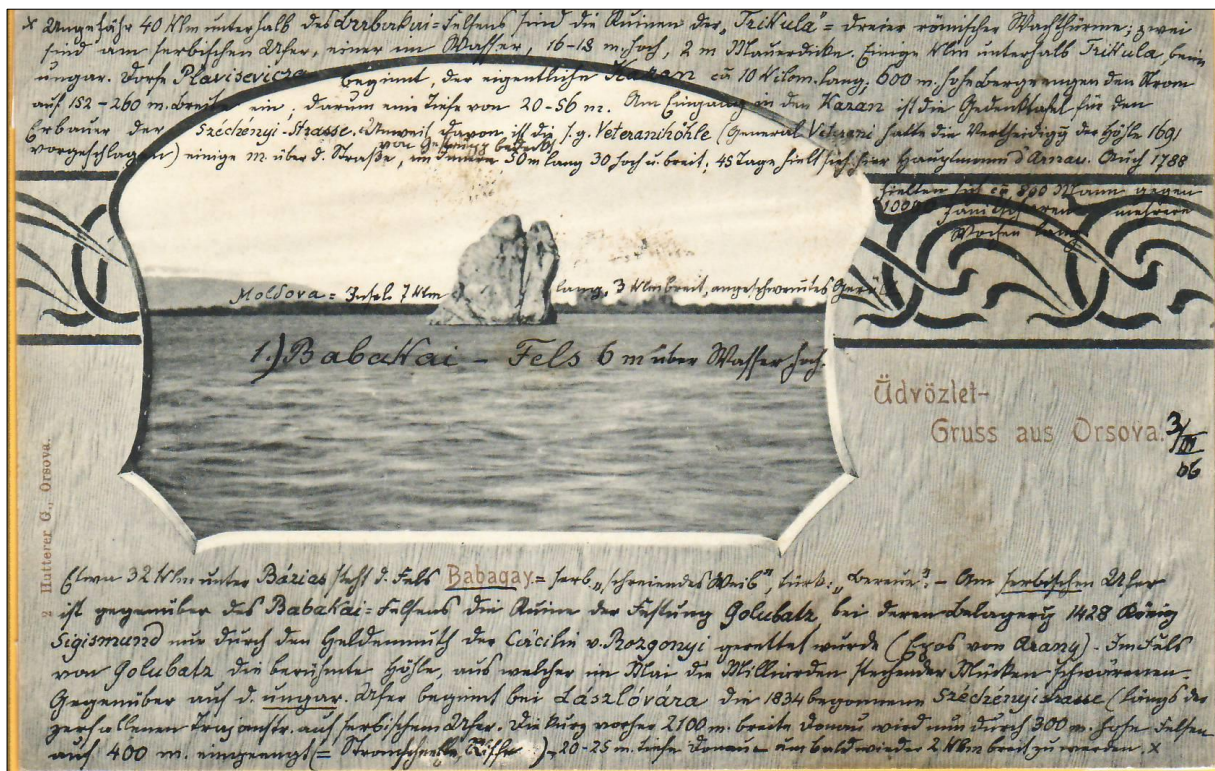 x Ungefähr 40 Klm unterhalb des Babakai=Felsens sind die Ruinen der „Trikula" = dreier römischer Wachthürme; zwei
sind am serbischen Ufer, einer im Wasser, 16-18 m. hoch, 2 m Mauerdicke. Einige Klm unterhalb Trikula, beim
ungar. Dorfe Plavisevicza beginnt, der eigentliche Kazan ca 10 Kilom. lang, 600 m. hohe Berge engen den Strom
auf 152-260 m. Breite ein, darum eine Tiefe von 20-56 m. Am Eingang in den Kazan ist die Gedenktafel für den
Erbauer der Széchényi-Strasse. Unweit davon ist die s.g. Veteranihöhle (General Veterani hatte die Vertheidigg der Höhle 1691
von Gestrüpp bedeckt
vorgeschlagen) einige m. über d. Straße, im Innern 50 m lang 30 hoch u. breit; 45 Tage hielt sich hier Hauptmann d'Arnau. Auch 1788
hielten sich ca 800 Mann gegen
mehrere
Wochen lang.
Moldova = Insel 7 Klm lang, 3 Klm breit, angeschwemmtes Geröll
1.) Babakai - Fels 6 m über Wasser hoch.
Üdvözlet-
Gruss aus Orsova.
3/III
06
2 Hutterer G., Orsova.
Etwa 32 Klm unter Bázias steht d. Fels Babagay = serb. „schreiendes Weib", türk: „bereue". - Am serbischen Ufer
ist gegenüber des Babakai=Felsens die Ruine der Festung Golubatz, bei deren Belagerg 1428 König
Sigismund nur durch den Heldenmuth der Cäcilie v. Rozgonyi gerettet wurde (Epos von Arany) - Im Fels
von Golubatz die berühmte Höhle, aus welcher im Mai die Milliarden stechender Mücken schwärmen.
Gegenüber auf d. ungar. Ufer beginnt bei Lászlóvára die 1834 begonnene Széchényistrasse (längs der
zerfallenen Trajanstr. auf serbischem Ufer. Die kurz vorher 2100 m. breite Donau wird nun durch 300 m. hohe Felsen
auf 400 m. eingeengt (= Stromschnelle, Riffe) 20-25 m. tiefe Donau - um bald wieder 2 Klm breit zu werden. x